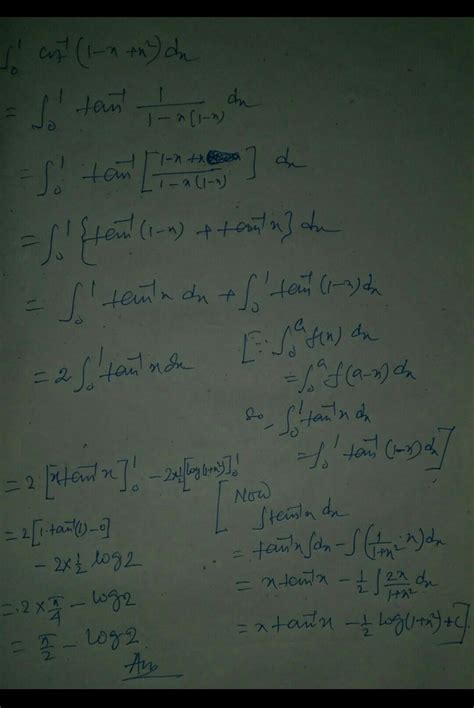 ∫₀¹ cot⁻¹ (1-x+x²) dx
= ∫₀¹ tan⁻¹ 1/(1-x(1-x)) dx
= ∫₀¹ tan⁻¹ [(1-x+x)/(1-x(1-x))] dx
= ∫₀¹ {tan⁻¹(1-x) + tan⁻¹x} dx
= ∫₀¹ tan⁻¹x dx + ∫₀¹ tan⁻¹(1-x) dx
= 2 ∫₀¹ tan⁻¹x dx
[∵ ∫₀ᵃ f(x) dx
= ∫₀ᵃ f(a-x) dx
so, ∫₀¹ tan⁻¹x dx
= ∫₀¹ tan⁻¹(1-x) dx]
= 2 [x tan⁻¹x]₀¹ - 2×½ [log(1+x²)]₀¹
= 2[1·tan⁻¹(1) - 0]
- 2×½ log2
= 2 × π/4 - log2
= π/2 - log2
Ans
[Now
∫tan⁻¹x dx
= tan⁻¹x ∫dx - ∫(1/(1+x²) · x) dx
= x tan⁻¹x - ½ ∫ 2x/(1+x²) dx
= x tan⁻¹x - ½ log(1+x²) + C]